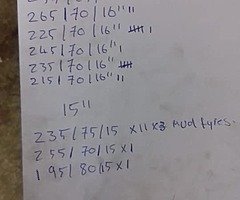 265/70/16" 11
225/70/16" 𝍸 1
245/70/16" 1
235/70/16" 𝍸
215/70/16" 11
15"
235/75/15 x11x3 mud tyres.
255/70/15x1
195/80/15x1